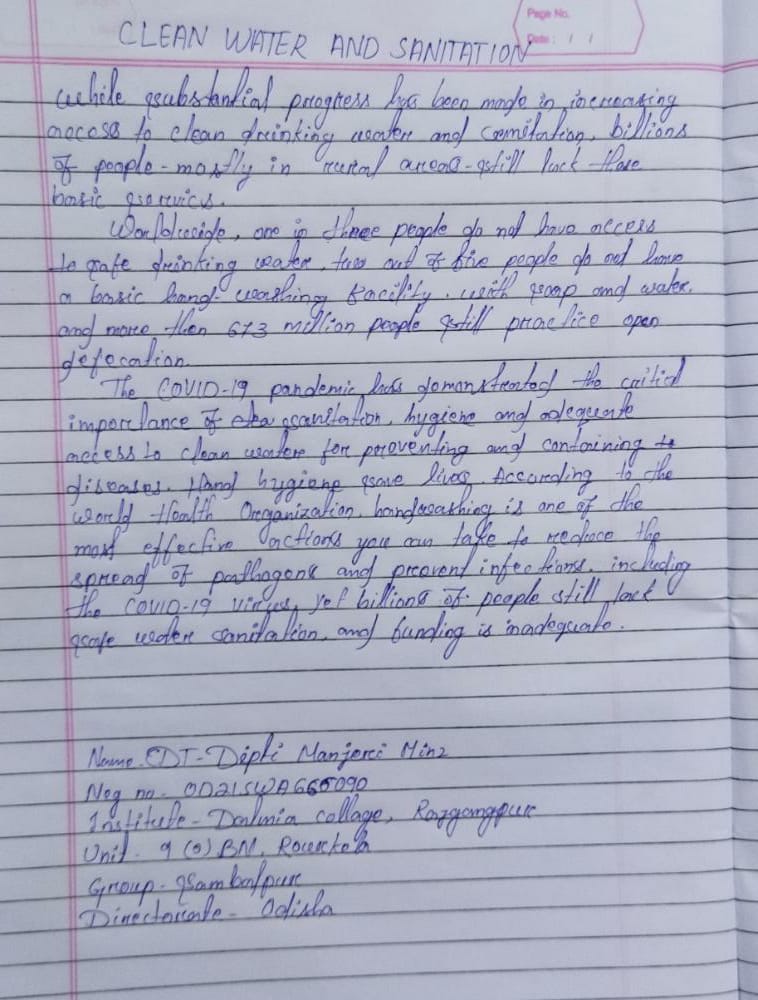 Page No.
Date: / /
CLEAN WATER AND SANITATION
While substantial progress has been made in increasing
access to clean drinking water and sanitation, billions
of people-mostly in rural areas-still lack these
basic services.
Worldwide, one in three people do not have access
to safe drinking water, two out of five people do not have
a basic hand-washing facility. with soap and water,
and more then 673 million people still practice open
defecation.
The COVID-19 pandemic has demonstrated the critical
importance of sanitation, hygiene and adequate
access to clean water for preventing and containing
diseases. Hand hygiene save lives. According to the
World Health Organization, handwashing is one of the
most effective actions you can take to reduce the
spread of pathogens and prevent infections, including
the COVID-19 virus, yet billions of people still lack
safe water sanitation, and funding is inadequate.
Name. CDT- Dipti Manjari Minz
Neg no- OD21SWA665090
Institute- Dalmia collage, Rajgangpur
Unit- 9 (O) BN, Rourkela
Group- Sambalpur
Directorate- Odisha